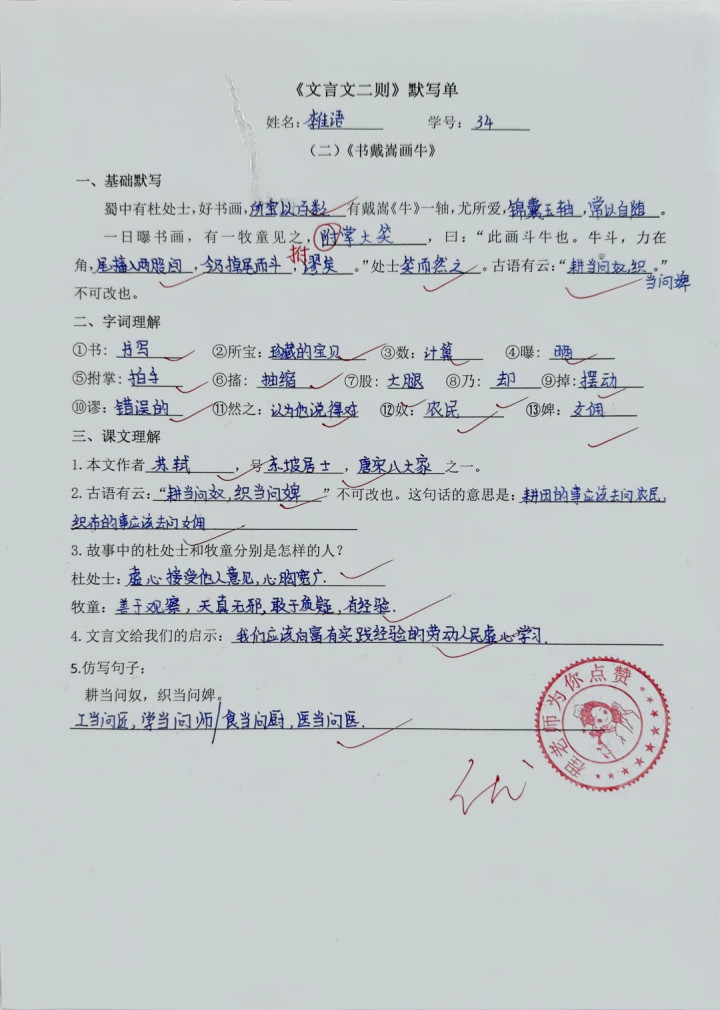 《文言文二则》默写单
姓名：李佳语 学号：34
（二）《书戴嵩画牛》
一、基础默写
蜀中有杜处士，好书画，所宝以百数 有戴嵩《牛》一轴，尤所爱，锦囊玉轴，常以自随。
一日曝书画，有一牧童见之，附掌大笑，曰：“此画斗牛也。牛斗，力在
拊
角，尾搐入两股间，今乃掉尾而斗，谬矣。”处士笑而然之。古语有云：“耕当问奴，织
当问婢”
不可改也。
二、字词理解
①书：书写 ②所宝：珍藏的宝贝 ③数：计算 ④曝：晒
⑤拊掌：拍手 ⑥搐：抽缩 ⑦股：大腿 ⑧乃：却 ⑨掉：摆动
⑩谬：错误的 ⑪然之：认为他说得对 ⑫奴：农民 ⑬婢：女佣
三、课文理解
1.本文作者苏轼，号东坡居士，唐宋八大家之一。
2.古语有云：“耕当问奴，织当问婢”不可改也。这句话的意思是：耕田的事应该去问农民，
织布的事应该去问女佣
3.故事中的杜处士和牧童分别是怎样的人？
杜处士：虚心接受他人意见，心胸宽广.
牧童：善于观察，天真无邪，敢于质疑，有经验.
4.文言文给我们的启示：我们应该向富有实践经验的劳动人民虚心学习.
5.仿写句子：
耕当问奴，织当问婢。
工当问匠，学当问师/食当问厨，医当问医.
程老师为你点赞
优